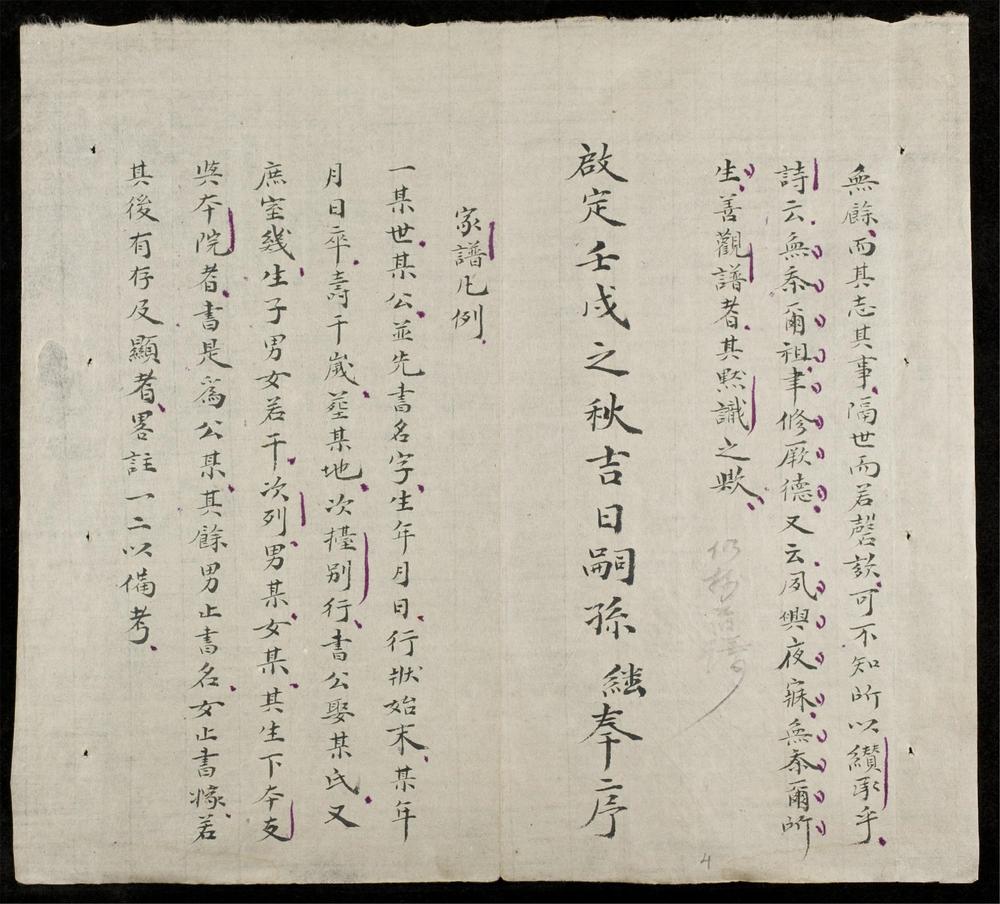 無餘而其志其事隔世而若謦欬可不知所以纘承乎
詩云無忝爾祖聿修厥德又云夙興夜寐無忝爾所
生善觀譜者其默識之歟
啟定壬戌之秋吉日嗣孫繼奉序
家譜凡例
一某世某公並先書名字生年月日行狀始末某年
月日卒壽干歲塟某地次擡別行書公娶某氏又
庶室幾生子男女若干次列男某女某其生下夲支
與夲院者書是爲公某其餘男止書名女止書嫁若
其後有存及顯者畧註一二以備考
4